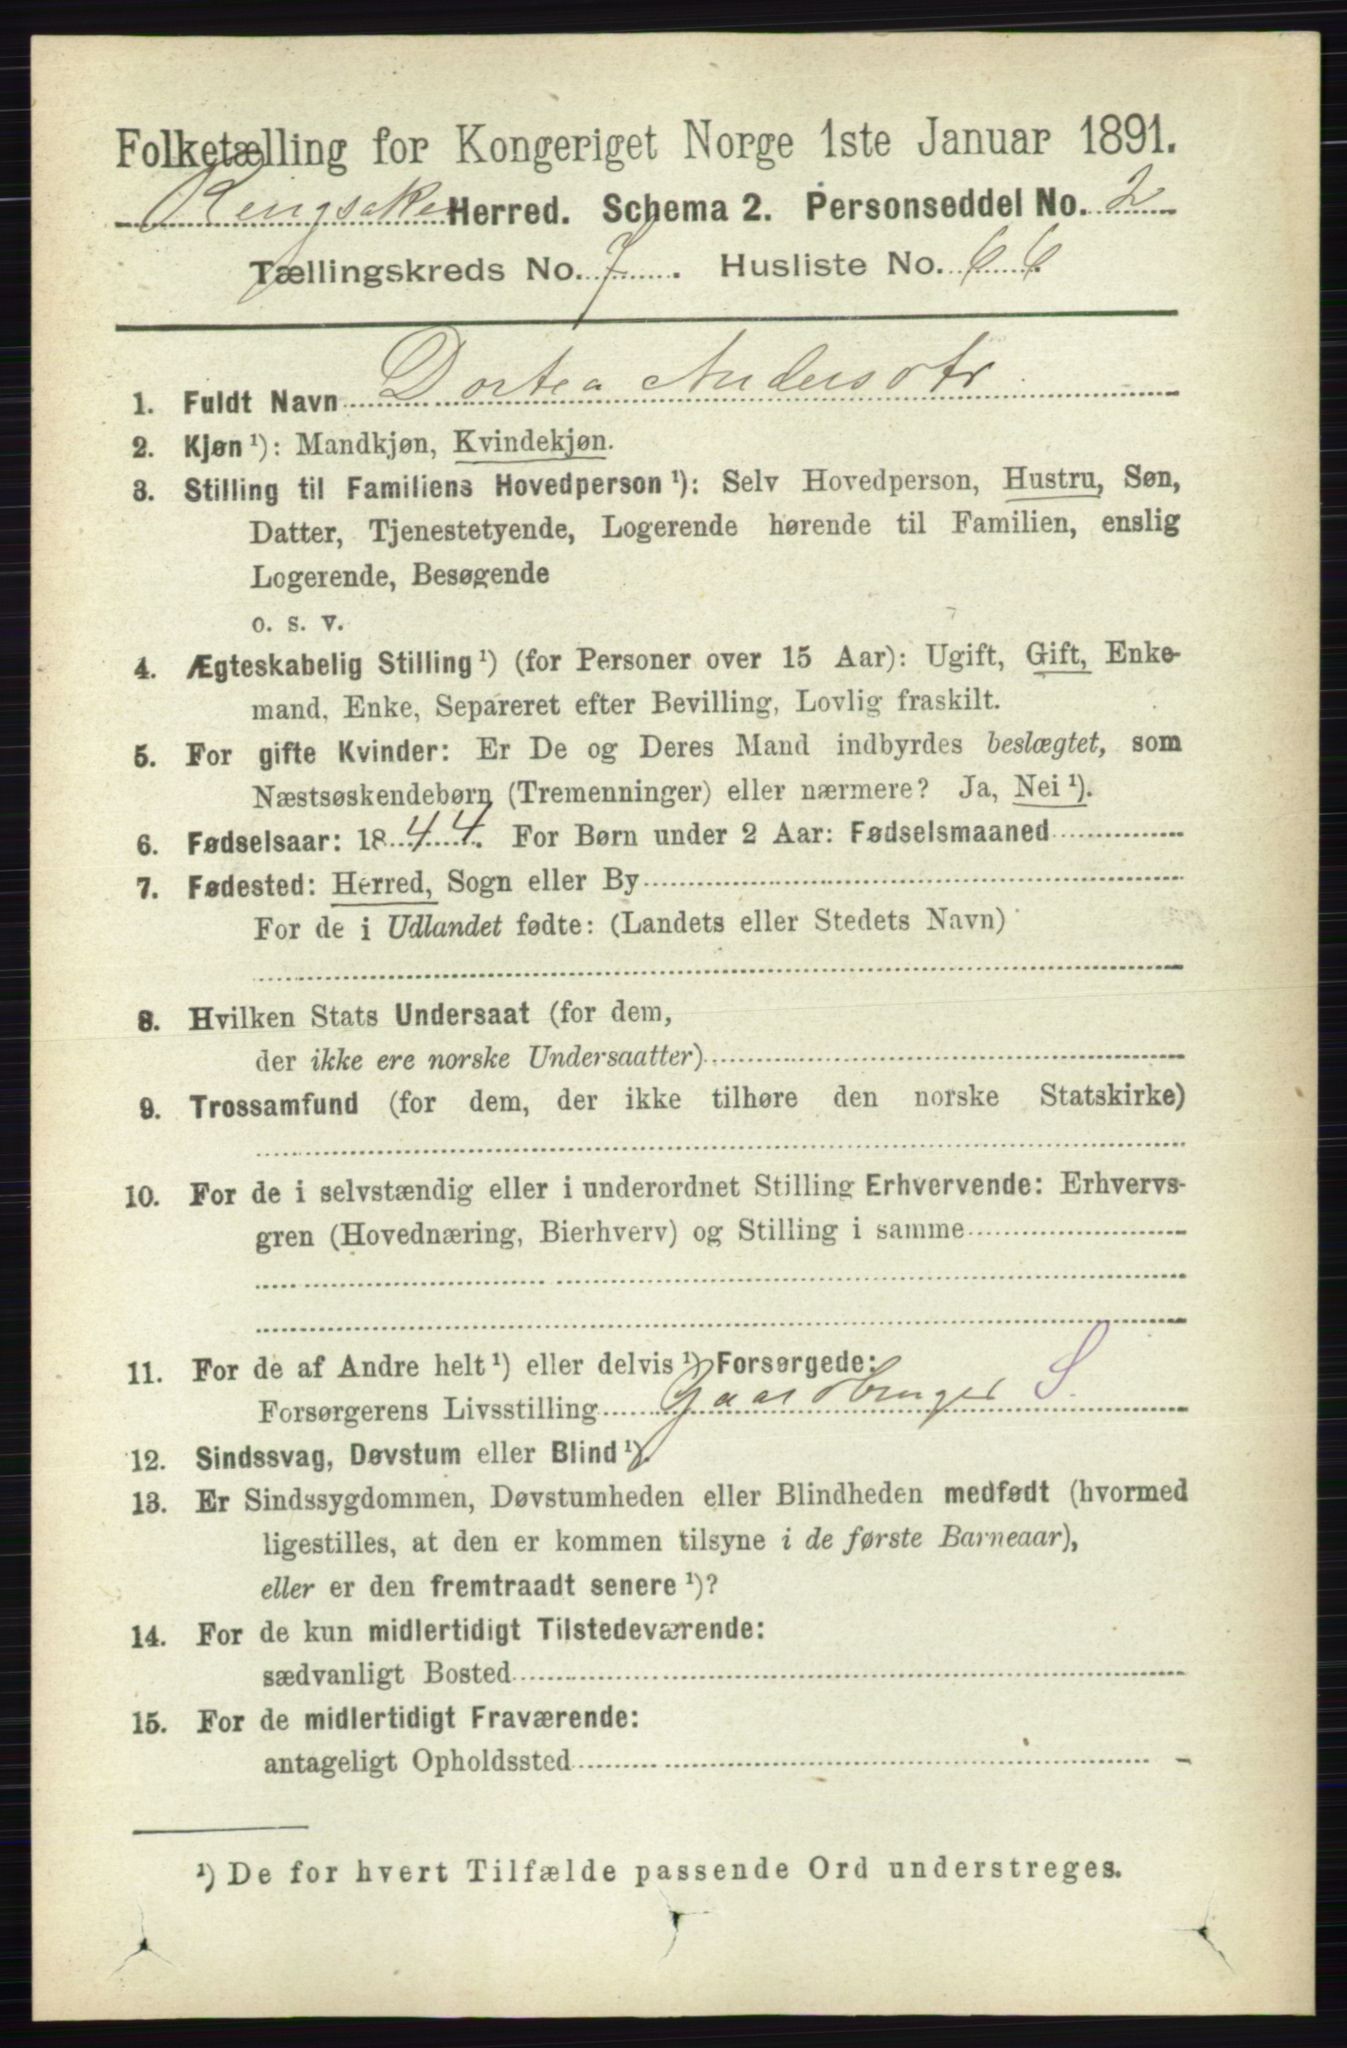 Folketælling for Kongeriget Norge 1ste Januar 1891.
Ringsaker Herred. Schema 2. Personseddel No. 2
Tællingskreds No. 7. Husliste No. 66
1. Fuldt Navn Dortea Andersdtr
2. Kjøn ¹): Mandkjøn, Kvindekjøn.
3. Stilling til Familiens Hovedperson ¹): Selv Hovedperson, Hustru, Søn,
Datter, Tjenestetyende, Logerende hørende til Familien, enslig
Logerende, Besøgende
o. s. v.
4. Ægteskabelig Stilling ¹) (for Personer over 15 Aar): Ugift, Gift, Enke-
mand, Enke, Separeret efter Bevilling, Lovlig fraskilt.
5. For gifte Kvinder: Er De og Deres Mand indbyrdes beslægtet, som
Næstsøskendebørn (Tremenninger) eller nærmere? Ja, Nei ¹).
6. Fødselsaar: 1844. For Børn under 2 Aar: Fødselsmaaned
7. Fødested: Herred, Sogn eller By
For de i Udlandet fødte: (Landets eller Stedets Navn)
8. Hvilken Stats Undersaat (for dem,
der ikke ere norske Undersaatter)
9. Trossamfund (for dem, der ikke tilhøre den norske Statskirke)
10. For de i selvstændig eller i underordnet Stilling Erhvervende: Erhvervs-
gren (Hovednæring, Bierhverv) og Stilling i samme
11. For de af Andre helt ¹) eller delvis ¹) Forsørgede:
Forsørgerens Livsstilling Gaardbruger S.
12. Sindssvag, Døvstum eller Blind ¹).
13. Er Sindssygdommen, Døvstumheden eller Blindheden medfødt (hvormed
ligestilles, at den er kommen tilsyne i de første Barneaar),
eller er den fremtraadt senere ¹)?
14. For de kun midlertidigt Tilstedeværende:
sædvanligt Bosted
15. For de midlertidigt Fraværende:
antageligt Opholdssted
¹) De for hvert Tilfælde passende Ord understreges.